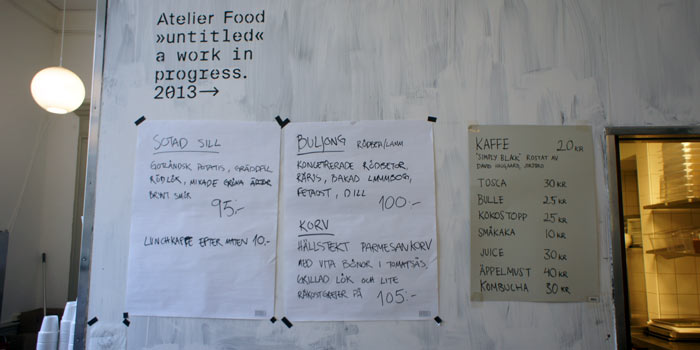 Atelier Food
»untitled«
a work in
progress.
2013→
SOTAD SILL
GOTLÄNDSK POTATIS, GRÄDDFIL
RÖDLÖK, MIXADE GRÖNA ÄRTER
BRYNT SMÖR
95:-
LUNCHKAFFE EFTER MATEN 10,-
BULJONG RÖDBETA/LAMM
KONCENTRERADE RÖDBETOR,
RÅRIS, BAKAD LAMMBOG,
FETAOST, DILL
100:-
KORV
HÄLLSTEKT PARMESANKORV
MED VITA BÖNOR I TOMATSÅS,
GRILLAD LÖK OCH LITE
PÅ 105:-
KAFFE 20 KR
"SIMPLY BLACK" ROSTAT AV
DAVID
TOSCA 30 KR
BULLE 25 KR
KOKOSTOPP 25 KR
SMÅKAKA 10 KR
JUICE 30 KR
ÄPPELMUST 40 KR
KOMBUCHA 30 KR